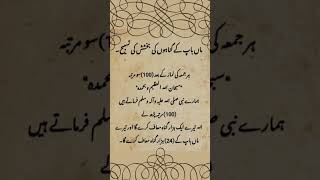 ماں باپ کے گناہوں کی بخشش کی تسبیح۔
ہر جمعہ کی نماز کے بعد (100) سو مرتبہ
"سبحان اللہ العظیم وبحمدہ"
ہمارے نبی صلی اللہ علیہ وآلہ وسلم فرماتے ہیں
(100) مرتبہ پڑھنے سے
اللہ تیرے ایک ہزار گناہ معاف کرے گا اور تیرے
ماں باپ کے (24) ہزار گناہ معاف کرے گا۔